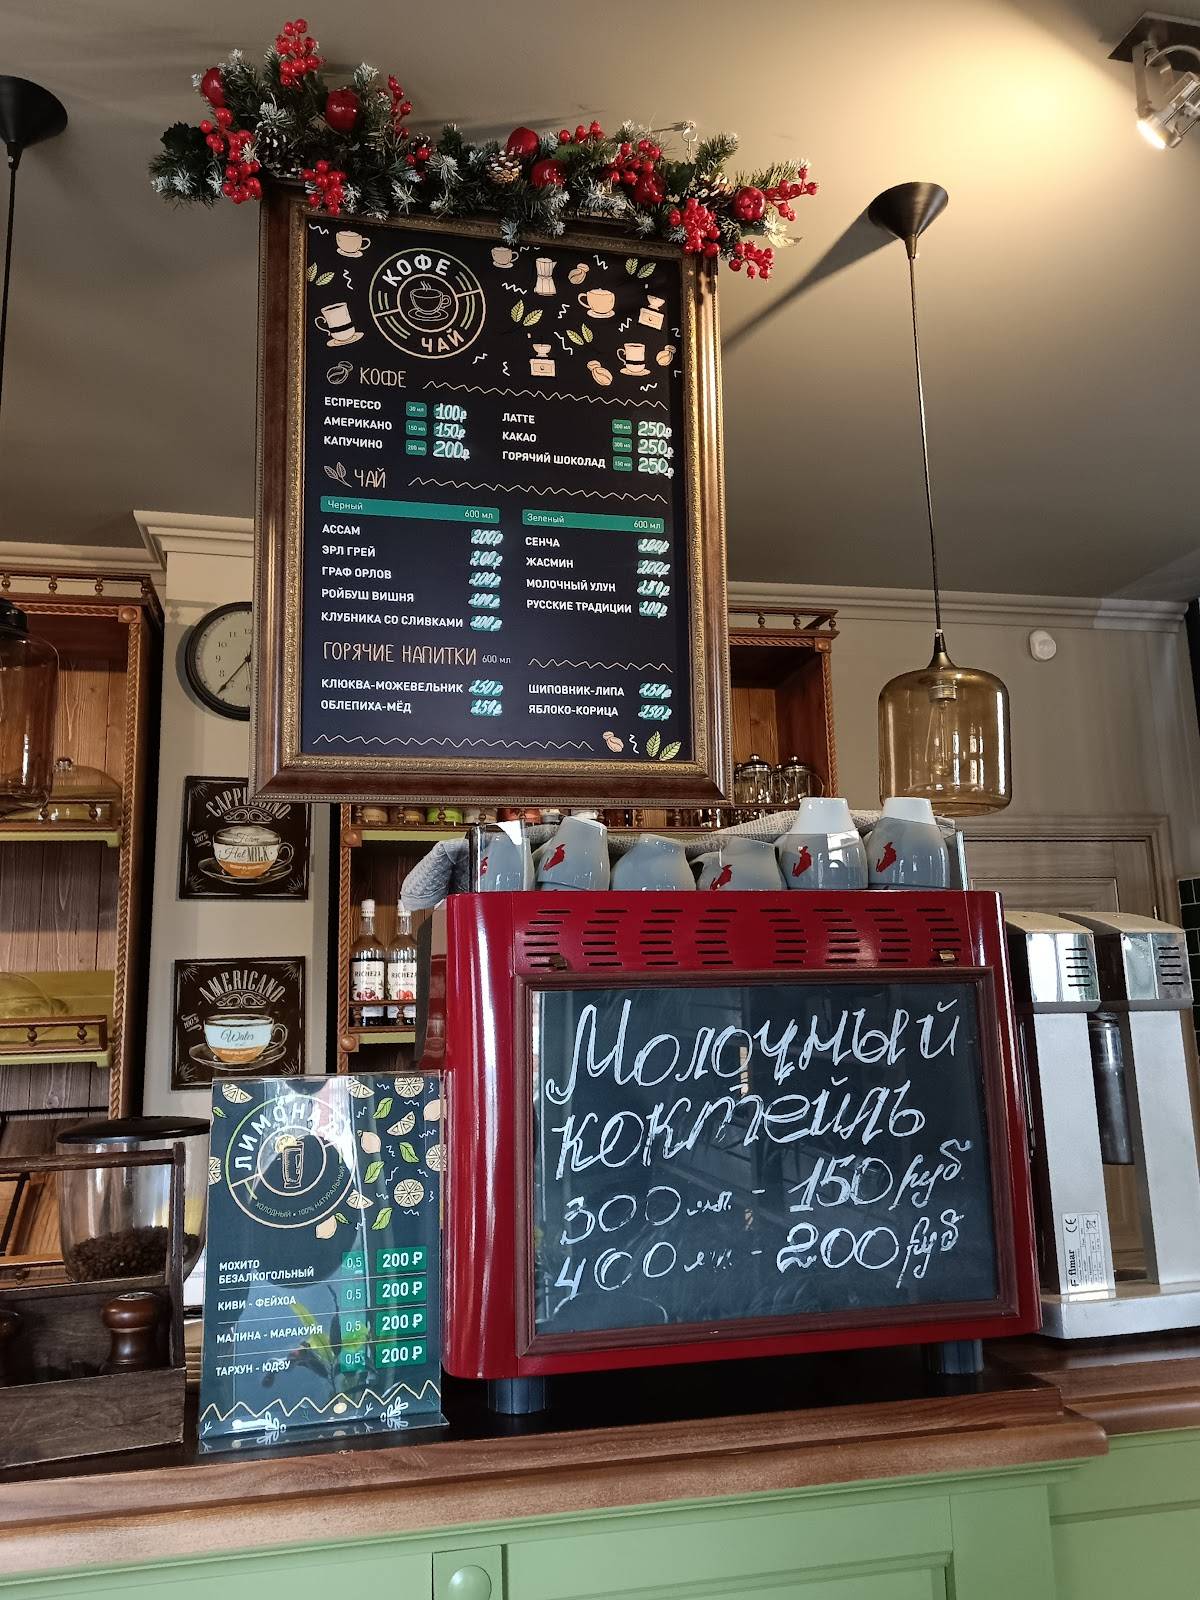 КОФЕ
ЧАЙ
КОФЕ
ЕСПРЕССО 30 мл 100₽
АМЕРИКАНО 150 мл 150₽
КАПУЧИНО 200 мл 200₽
ЛАТТЕ 300 мл 250₽
КАКАО 300 мл 250₽
ГОРЯЧИЙ ШОКОЛАД 150 мл 250₽
ЧАЙ
Черный 600 мл
АССАМ 200₽
ЭРЛ ГРЕЙ 200₽
ГРАФ ОРЛОВ 200₽
РОЙБУШ ВИШНЯ 200₽
КЛУБНИКА СО СЛИВКАМИ 200₽
Зеленый 600 мл
СЕНЧА 200₽
ЖАСМИН 200₽
МОЛОЧНЫЙ УЛУН 250₽
РУССКИЕ ТРАДИЦИИ 200₽
ГОРЯЧИЕ НАПИТКИ 600 мл
КЛЮКВА-МОЖЕВЕЛЬНИК 250₽
ОБЛЕПИХА-МЁД 250₽
ШИПОВНИК-ЛИПА 250₽
ЯБЛОКО-КОРИЦА 250₽
CAPPUCCINO
100%
Hot MILK
AMERICANO
100%
Water
RICHEZA
RICHEZA
Молочный
коктейль
300 мл. - 150 руб
400 мл - 200 руб
ЛИМОНАД
ХОЛОДНЫЙ • 100% НАТУРАЛЬНЫЙ
МОХИТО
БЕЗАЛКОГОЛЬНЫЙ 0,5 200 ₽
КИВИ - ФЕЙХОА 0,5 200 ₽
МАЛИНА - МАРАКУЙЯ 0,5 200 ₽
ТАРХУН - ЮДЗУ 0,5 200 ₽
CE
Fimar